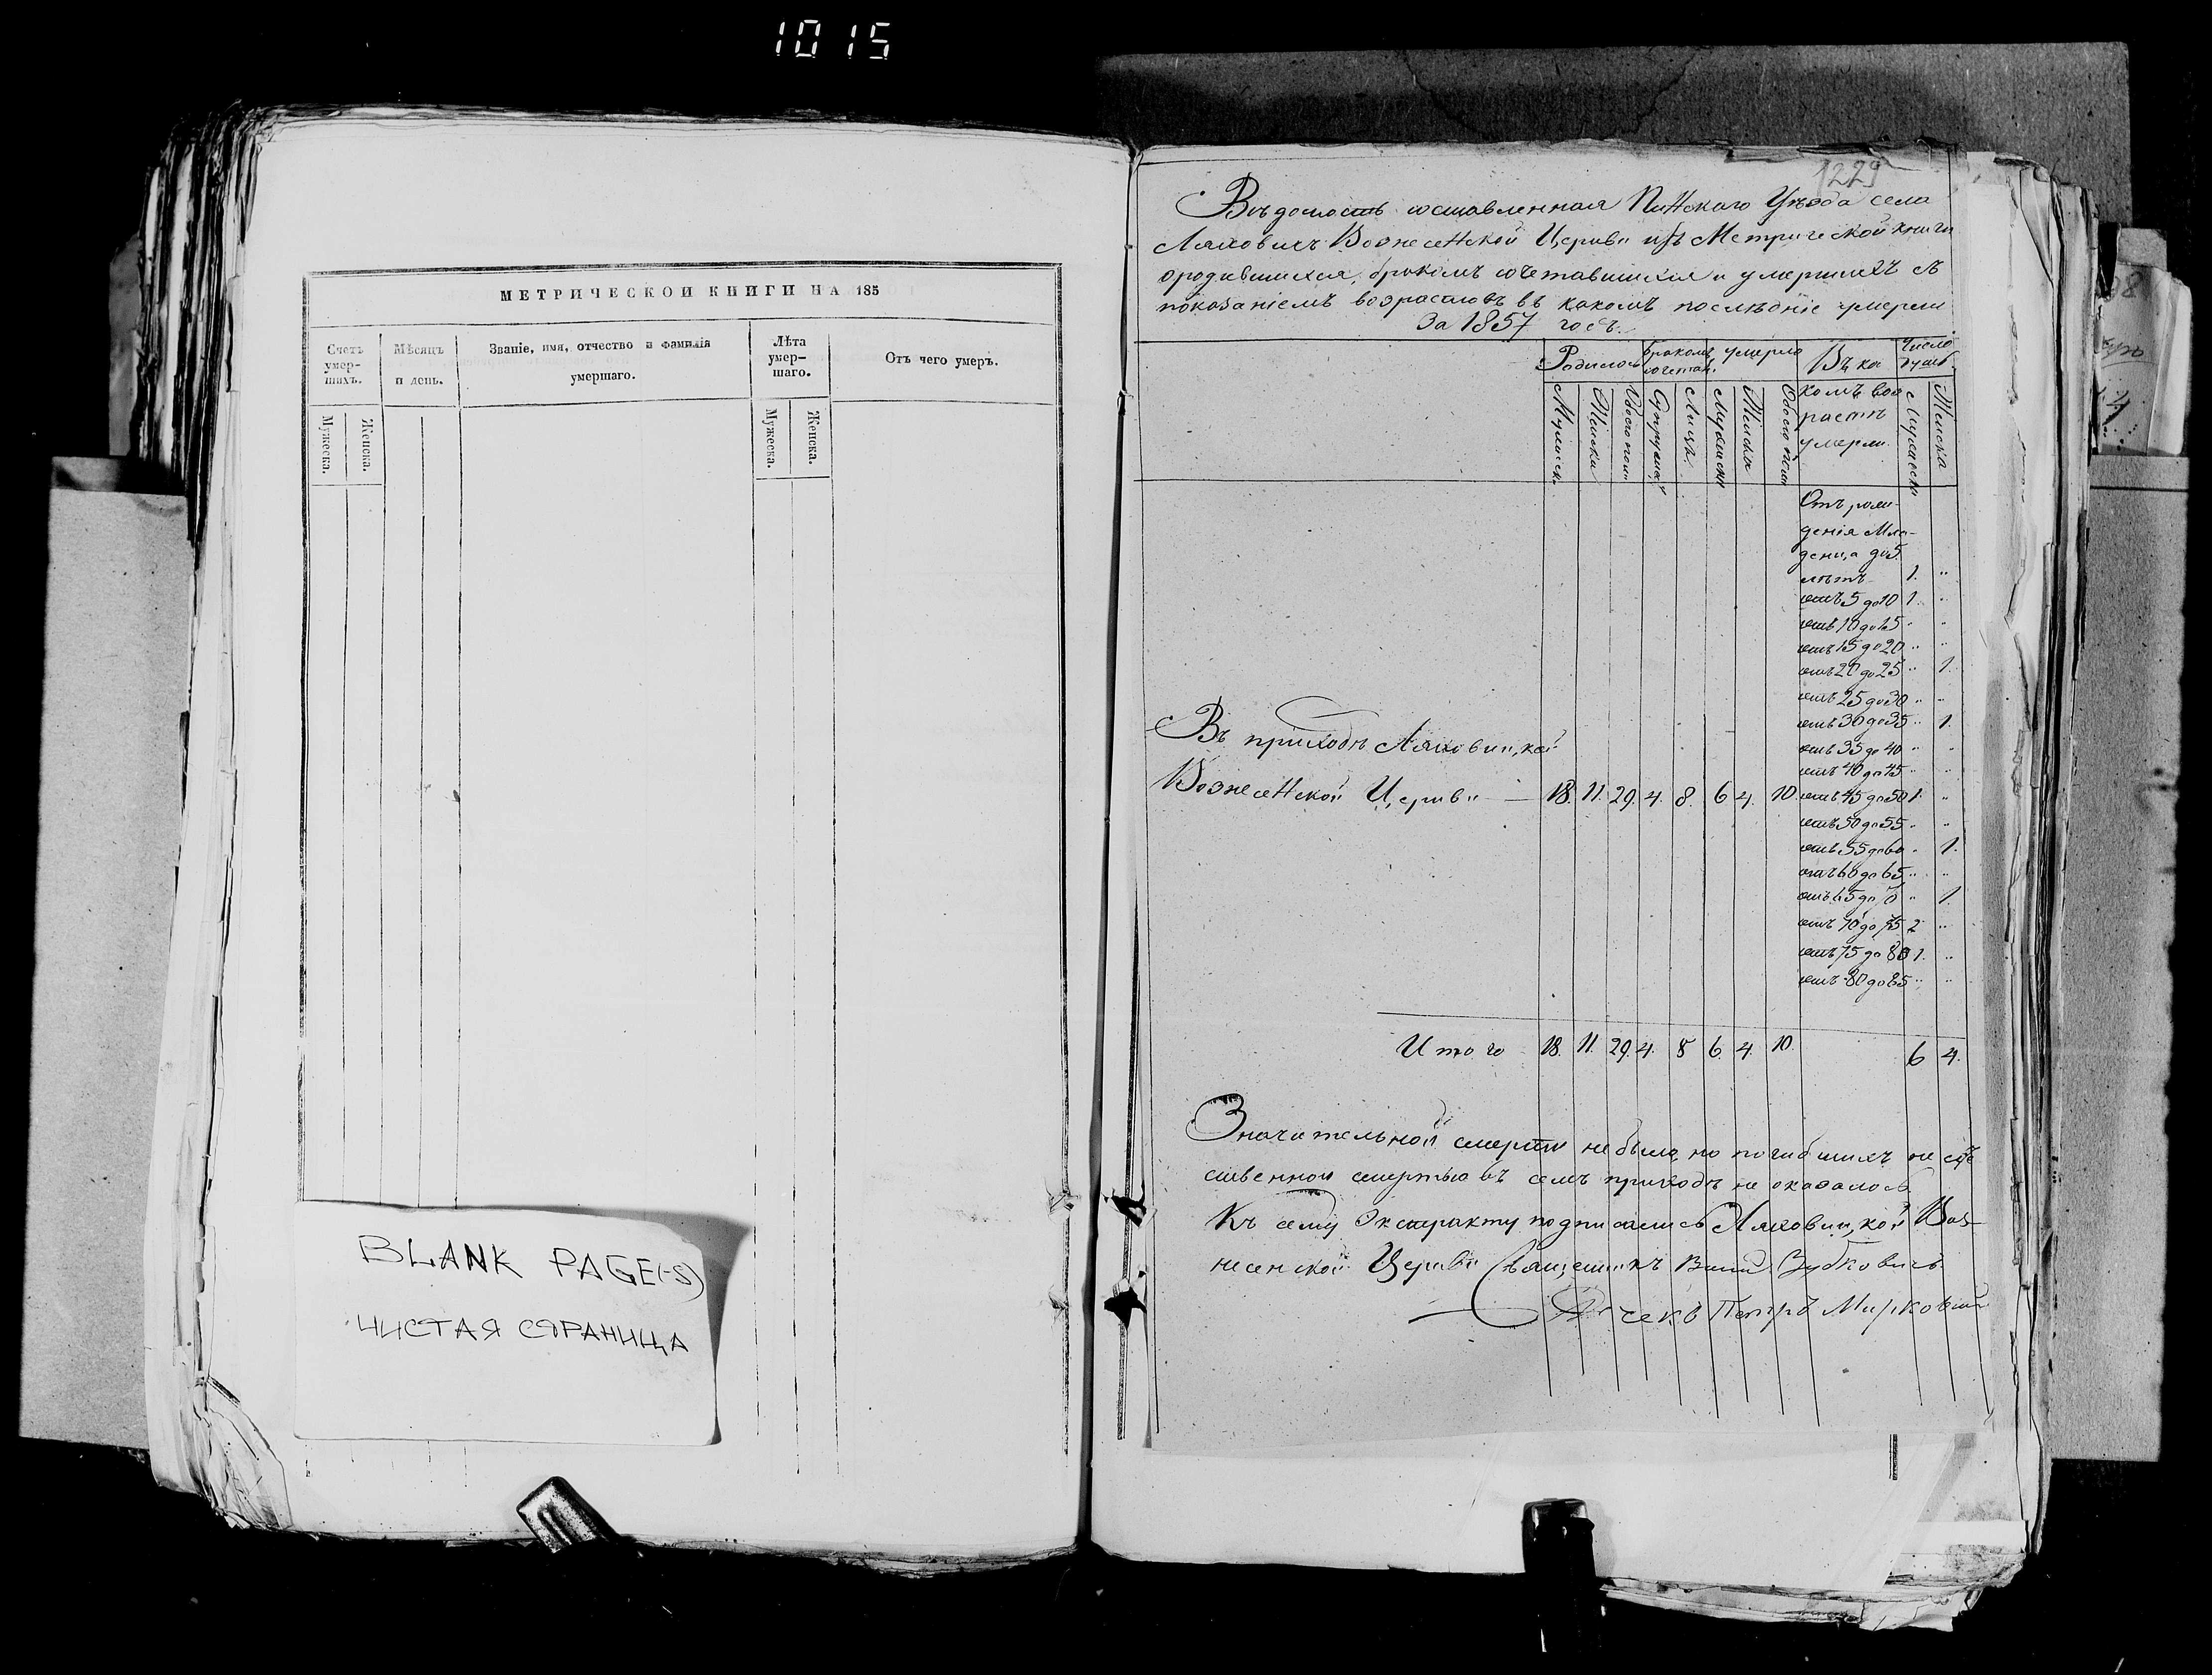 1015
МЕТРИЧЕСКОЙ КНИГИ НА 185
Счетъ умер-шихъ.
Мѣсяцъ и день.
Званіе, имя, отчество и фамилія умершаго.
Лѣта умер-шаго.
Отъ чего умеръ.
Мужеска.
Женска.
Мужеска.
Женска.
BLANK PAGE(-S)
ЧИСТАЯ СТРАНИЦА
1229
Вѣдомость составленная Пинскаго Уѣзда села
Ляховичъ Вознесенской Церкви изъ Метрической книги
ородившихся, бракомъ сочетавшихся и умершихъ съ
показаніемъ возрастовъ въ какомъ послѣдніе умерли
За 1857 годъ.
Родилось
бракомъ сочетан.
умерло
Въ ка
комъ воз
растѣ
умерли.
Число душъ.
Мужеска
Женска
Обоего пола
Супружествъ
Лицъ
Мужеска
Женска
Обоего пола
Мужеска
Женска
Отъ рож-
денія Мла-
денца до 5
лѣтъ 1. "
отъ 5 до 10 1. "
отъ 10 до 15 " "
отъ 15 до 20 " "
отъ 20 до 25 " 1.
отъ 25 до 30 " "
отъ 30 до 35 " 1.
отъ 35 до 40 " "
отъ 40 до 45 " "
Въ приходѣ Ляховицкой
Вознесенской Церкви — 18. 11. 29. 4. 8. 6 4. 10. отъ 45 до 50 1. "
отъ 50 до 55 " "
отъ 55 до 60 " 1.
отъ 60 до 65 " "
отъ 65 до 70 " 1.
отъ 70 до 75 2 "
отъ 75 до 80 1. "
отъ 80 до 85 " "
Итого 18. 11. 29. 4. 8 6. 4. 10. 6 4.
Значительной смерти не было, но погибшихъ не есте
ственной смертью въ семъ приходѣ не оказалось.
Къ сему Экстракту подписались Ляховицкой Воз-
несенской Церкви Священникъ Зубковичъ
Петръ